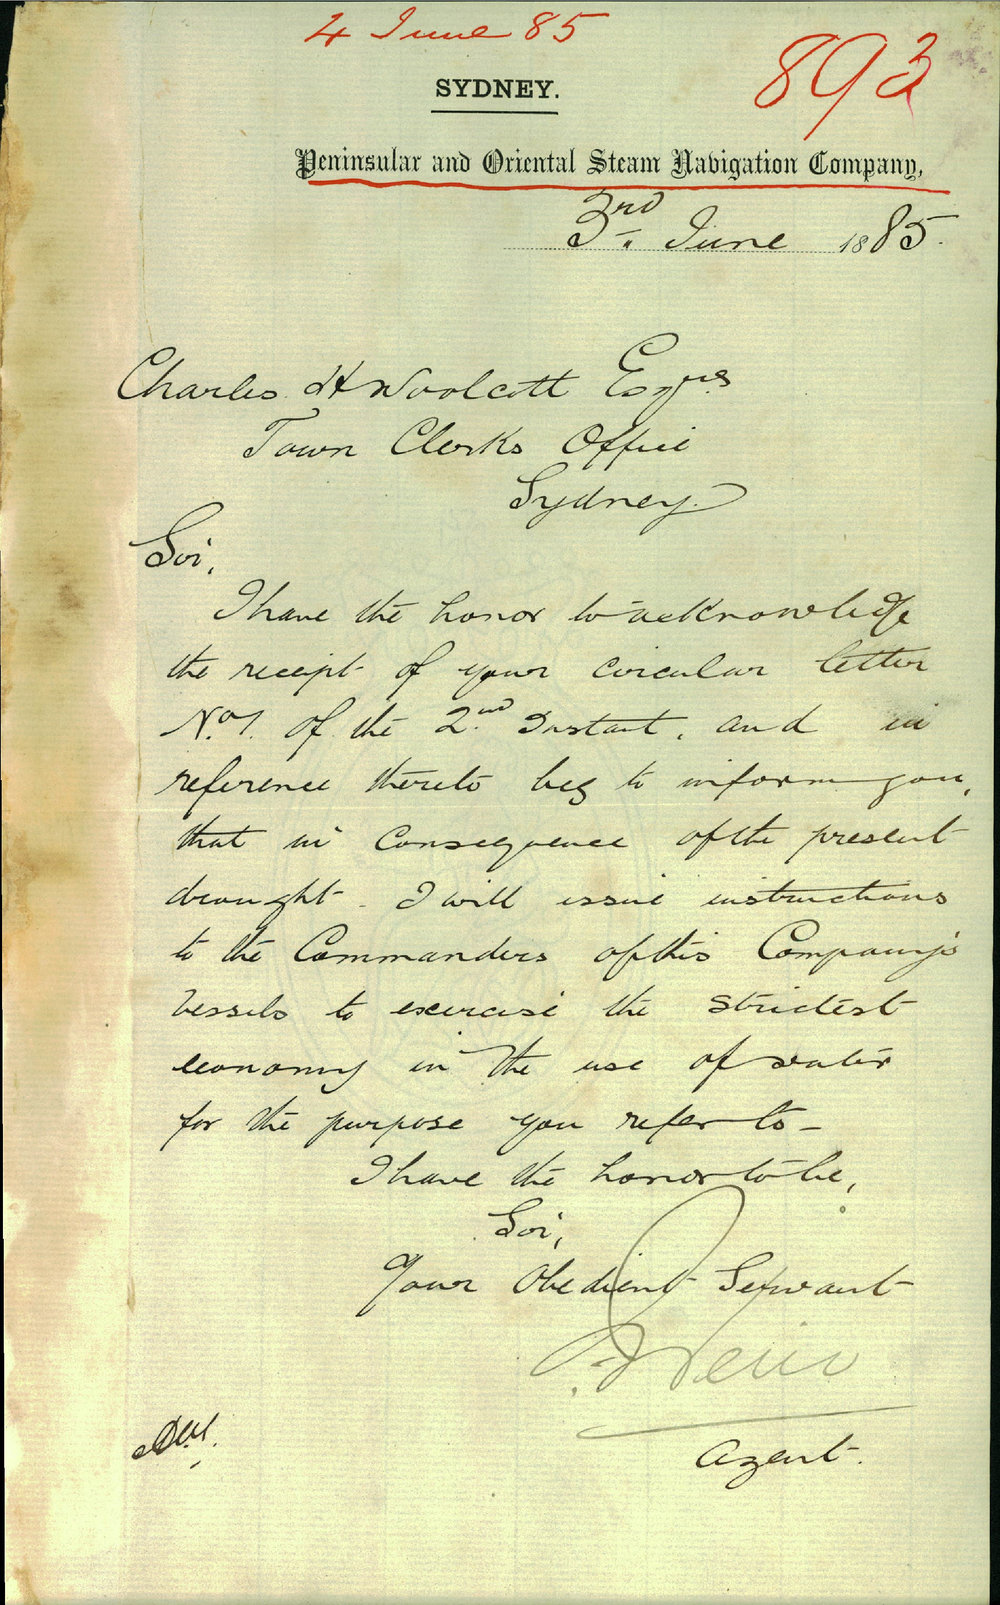 4 June 85
893
SYDNEY.
Peninsular and Oriental Steam Navigation Company,
3rd. June 1885.
Charles H Woolcott Esqre
Town Clerks Office
Sydney.
Sir,
I have the honor to acknowledge
the receipt of your circular letter
of the 2nd Instant. and in
reference thereto beg to inform you,
that in consequence of the present
drought. I will issue instructions
to the Commanders of this Company's
vessels to exercise the strictest
economy in the use of water
for the purpose you refer to—
I have the honor to be,
Sir,
Your Obedient Servant
Agent.